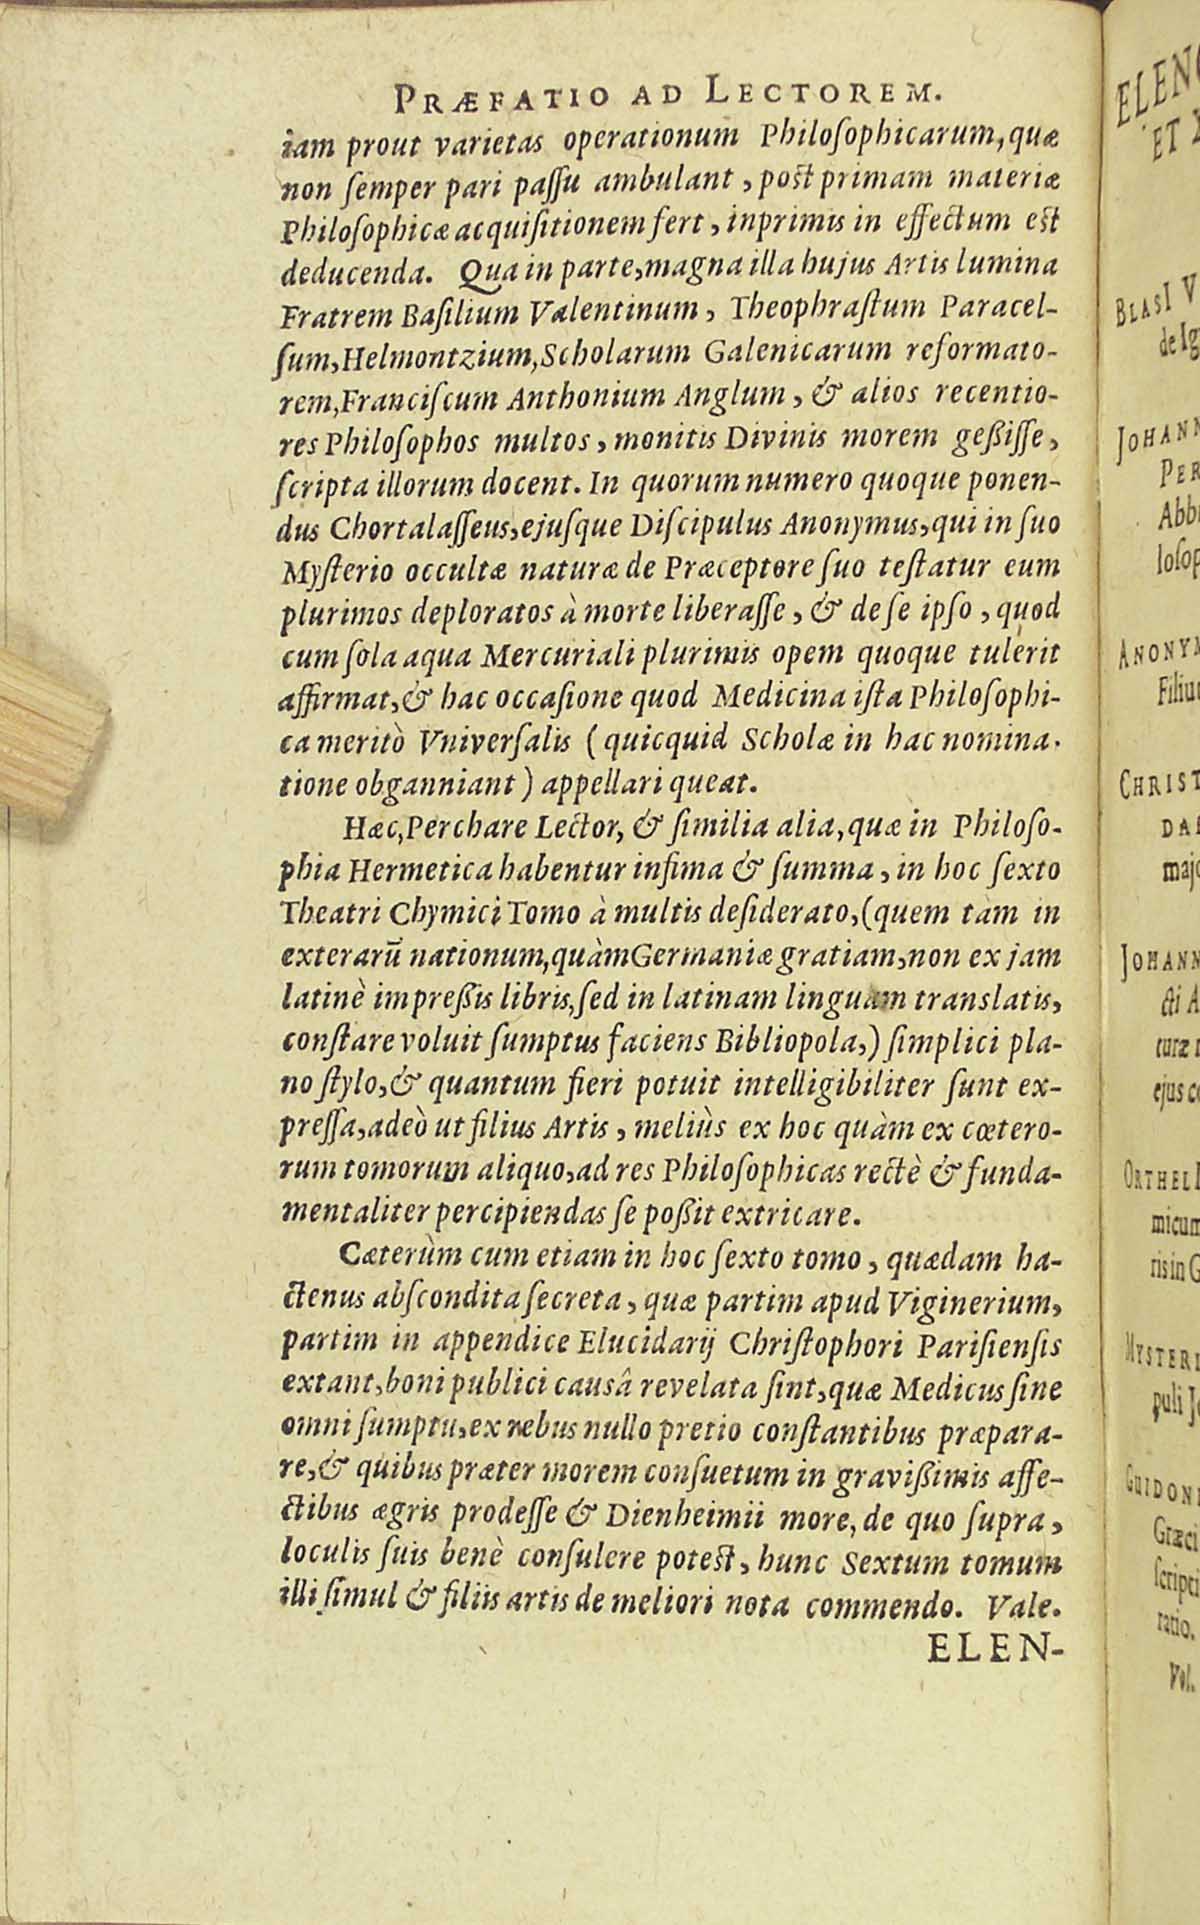 PRÆFATIO AD LECTOREM.
iam prout varietas operationum Philoſophicarum, quæ
non ſemper pari paſſu ambulant, poſt primam materiæ
Philoſophicæ acquiſitionem fert, inprimis in effectum eſt
deducenda. Qua in parte, magna illa hujus Artis lumina
Fratrem Baſilium Valentinum, Theophraſtum Paracel-
ſum, Helmontzium, Scholarum Galenicarum reformato-
rem, Franciſcum Anthonium Anglum, & alios recentio-
res Philoſophos multos, monitis Divinis morem geßiſſe,
ſcripta illorum docent. In quorum numero quoque ponen-
dus Chortalaſſeus, ejuſque Diſcipulus Anonymus, qui in ſuo
Myſterio occultæ naturæ de Præceptore ſuo teſtatur eum
plurimos deploratos à morte liberaſſe, & de ſe ipſo, quod
cum ſola aqua Mercuriali plurimis opem quoque tulerit
affirmat, & hac occaſione quod Medicina iſta Philoſophi-
ca meritò Vniverſalis (quicquid Scholæ in hac nomina-
tione obganniant) appellari queat.
Hæc, Perchare Lector, & ſimilia alia, quæ in Philoſo-
phia Hermetica habentur infima & ſumma, in hoc ſexto
Theatri Chymici Tomo à multis deſiderato, (quem tàm in
exterarū nationum, quàm Germaniæ gratiam, non ex jam
latinè impreßis libris, ſed in latinam linguam translatis,
conſtare voluit ſumptus faciens Bibliopola,) ſimplici pla-
no ſtylo, & quantum fieri potuit intelligibiliter ſunt ex-
preſſa, adeò ut filius Artis, meliùs ex hoc quàm ex cœtero-
rum tomorum aliquo, ad res Philoſophicas rectè & funda-
mentaliter percipiendas ſe poßit extricare.
Cæterùm cum etiam in hoc ſexto tomo, quædam ha-
ctenus abſcondita ſecreta, quæ partim apud Viginerium,
partim in appendice Elucidarij Chriſtophori Pariſienſis
extant, boni publici causâ revelata ſint, quæ Medicus ſine
omni ſumptu, ex rebus nullo pretio conſtantibus præpara-
re, & quibus præter morem conſuetum in gravißimis affe-
ctibus ægris prodeſſe & Dienheimii more, de quo ſupra,
loculis ſuis benè conſulere poteſt, hunc Sextum tomum
illi ſimul & filiis artis de meliori nota commendo. Vale.
ELEN-
ET
BLASI V
de Ig
JOHANN
PER
Abb
loſop
ANONYM
Filiu
CHRIST
DA
majo
JOHANN
cti A
turæ
ejus c
ORTHEL
micum
ris in G
MYSTERI
puli J
GUIDON
Græci
ſcripti
ratio.
Vol.